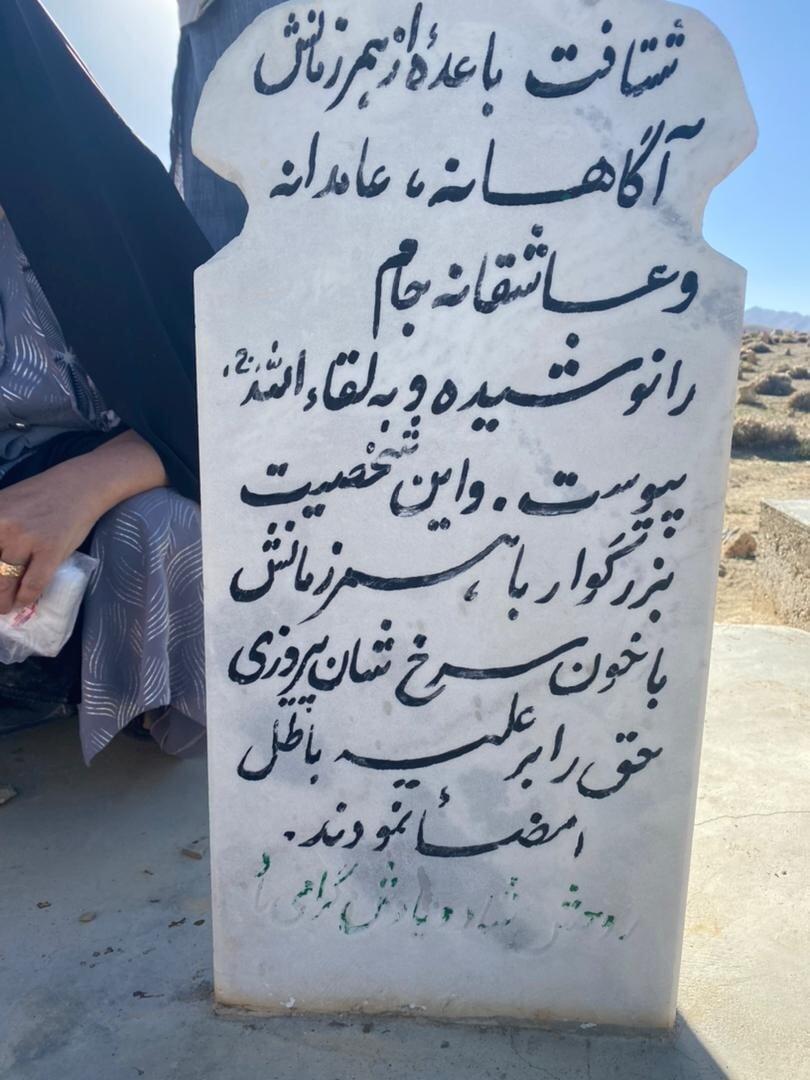 شتافت باعدهٔ از همرزمانش
آگاهانه، عامدانه
وعاشقانه جام
را نوشیده و به لقاء الله
پیوست. واین شخصیت
بزرگوار با همرزمانش
باخون سرخ شان پیروزی
حق را بر علیه باطل
امضأ نمودند.
روحش شاد و یادش گرامی باد